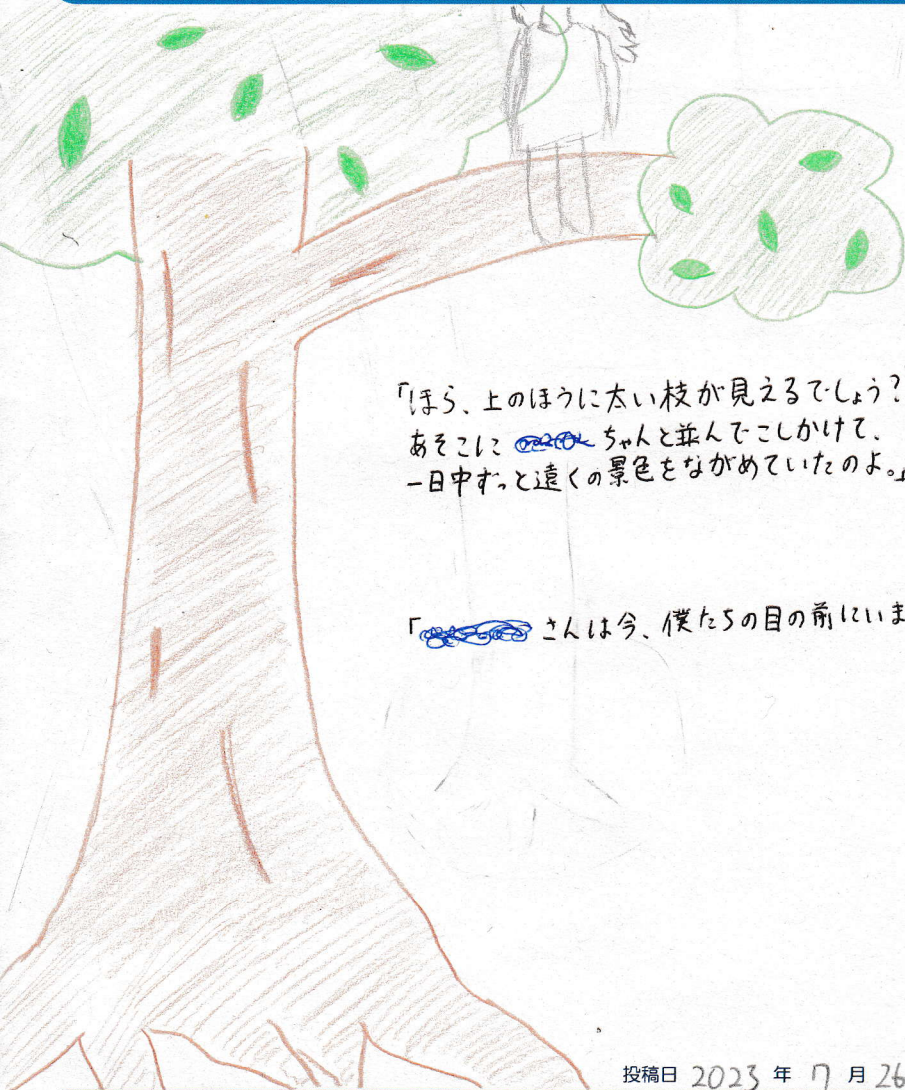 「ほら、上のほうに太い枝が見えるでしょう?
あそこに ちゃんと並んでこしかけて、
一日中ずっと遠くの景色をながめていたのよ。」
「 さんは今、僕たちの目の前にいま
投稿日 2023 年 7 月 26